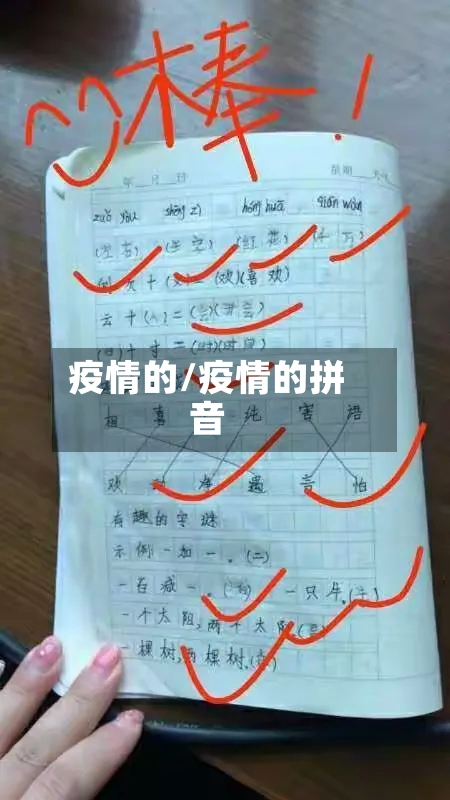 棒！
年 月 日 星期
zuǒ yòu shēng zì hóng huā qiān wàn
(左右) (生字) (红花) (千万)
例欠十(又)=(欢)(喜欢)
云十(人)=(会)(开会)
(日)十寸=(时)(时间)
疫情的/疫情的拼
音
相 喜 纯 害 语
欢 动 洁 遇 言 怕
有趣的字谜
示例:一加一。(二)
一百减一。(白) 一只牛。(牛)
一个太阳,两个太阳。
一棵树,两棵树。(林)